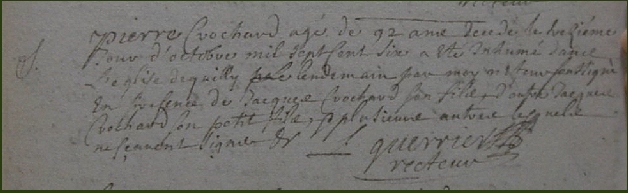 pierre Crochard agé de 92 ans decedé le treziéme
Jour d'octobre mil sept cent six a eté Inhumé dans
L'eglise de quilly le lendemain par moy recteur soussigné
En presence de Jacques Crochard son fils et d'autre Jacques
Crochard son petit fils et plusieurs autres lesquels
ne scauent signer
guerrier
recteur